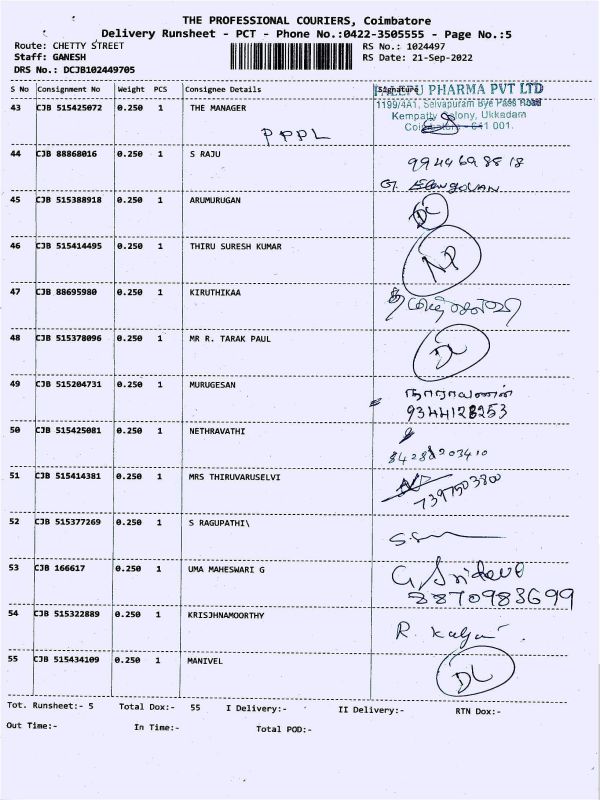 THE PROFESSIONAL COURIERS, Coimbatore
Delivery Runsheet - PCT - Phone No.:0422-3505555 - Page No.:5
Route: CHETTY STREET RS No.: 1024497
Staff: GANESH RS Date: 21-Sep-2022
DRS No.: DCJB102449705
S No Consignment No Weight PCS Consignee Details Signature
PHARMA PVT LTD
1199/4A1, Selvapuram Bye Pass Road
43 CJB 515425072 0.250 1 THE MANAGER
Kempatty Colony, Ukkadam
PPPL Coimbatore - 641 001.
44 CJB 88868016 0.250 1 S RAJU 9944698818
G. Elangovan
45 CJB 515388918 0.250 1 ARUMURUGAN DL
46 CJB 515414495 0.250 1 THIRU SURESH KUMAR NP
47 CJB 88695980 0.250 1 KIRUTHIKAA
48 CJB 515378096 0.250 1 MR R. TARAK PAUL DL
49 CJB 515204731 0.250 1 MURUGESAN நாராயணன்
9344128253
50 CJB 515425081 0.250 1 NETHRAVATHI
51 CJB 515414381 0.250 1 MRS THIRUVARUSELVI
7397503800
52 CJB 515377269 0.250 1 S RAGUPATHI\
53 CJB 166617 0.250 1 UMA MAHESWARI G G. Sridevi
8870983699
54 CJB 515322889 0.250 1 KRISJHNAMOORTHY
R.
55 CJB 515434109 0.250 1 MANIVEL DL
Tot. Runsheet:- 5 Total Dox:- 55 I Delivery:- II Delivery:- RTN Dox:-
Out Time:- In Time:- Total POD:-